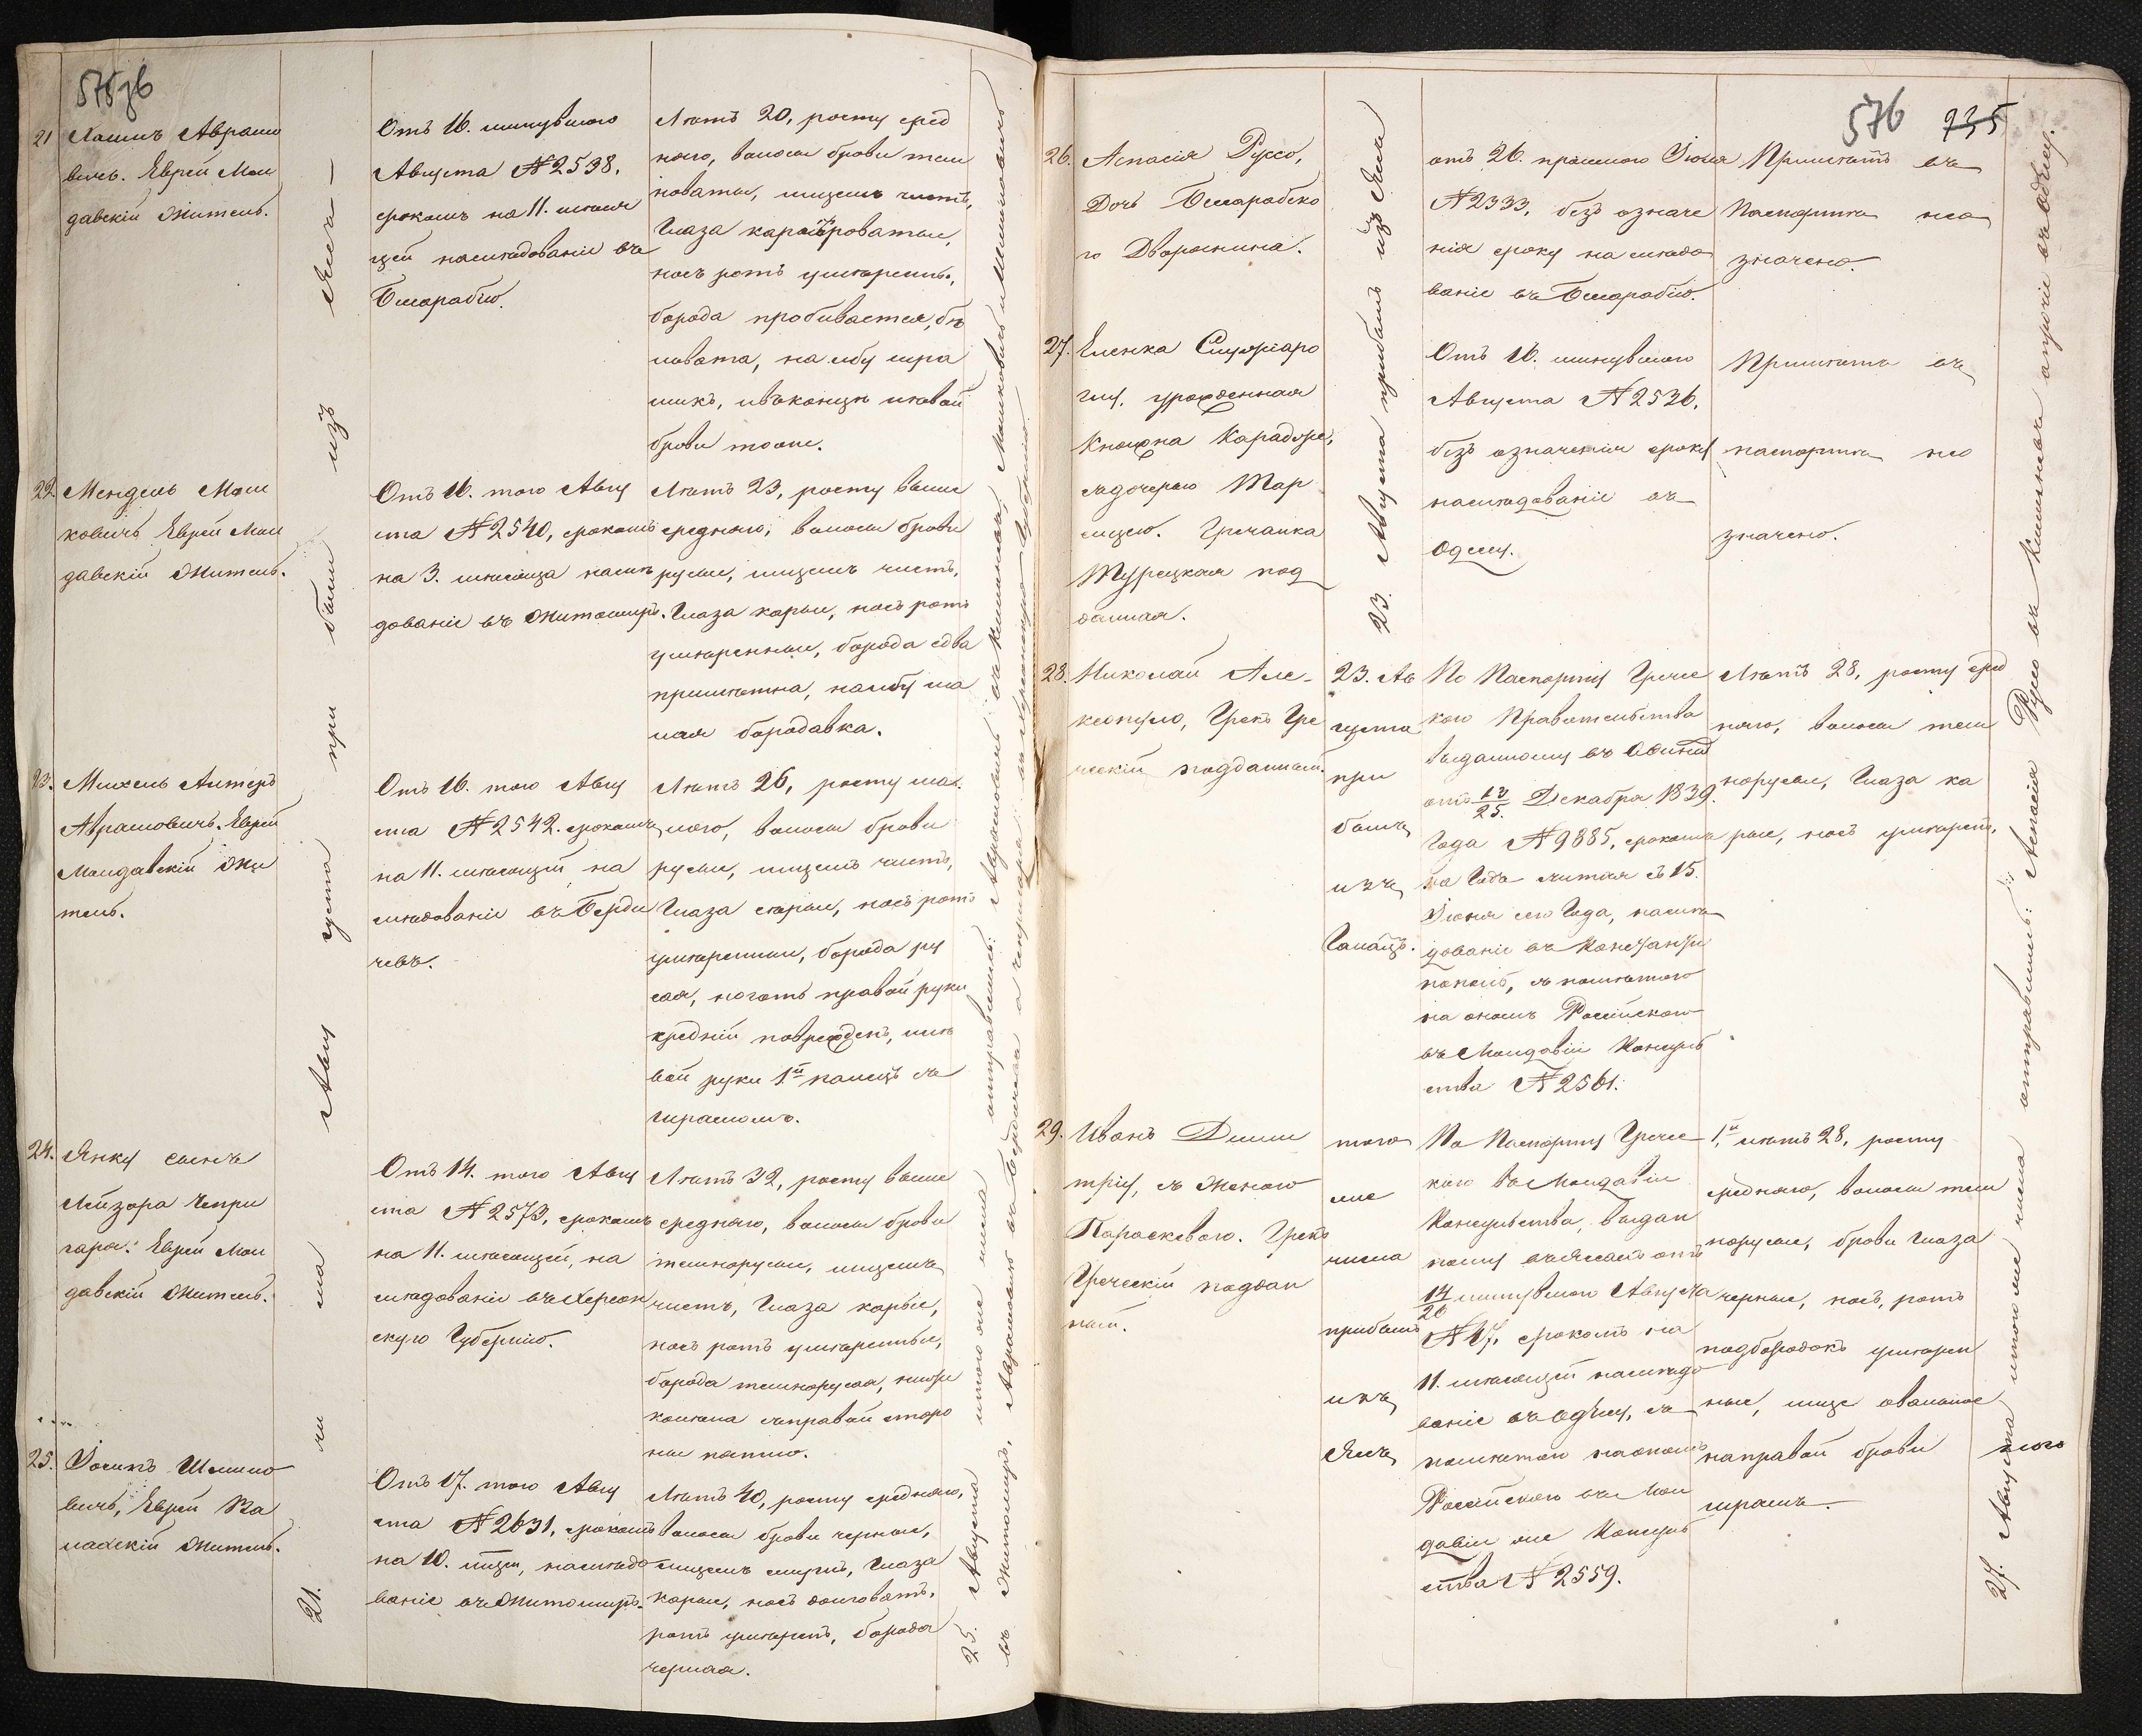 575 об
21 Хаимъ Аврамо
вичъ. Еврей Мол
давскій Житель.
Отъ 16. минувшаго
Августа №2538.
срокомъ на 11. мѣся
цей наслѣдованіе въ
Бесарабію.
Лѣтъ 20, росту сред
няго, волосы брови тем
новаты, лицемъ чистъ,
Глаза
носъ ротъ умѣренъ,
борода пробивается, бѣ
ловата, на лбу шра
микъ, и въ концѣ лѣвой
брови тоже.
22. Мендель Мош
ковичъ Еврей Мол
давскій Житель.
Отъ 16. того Авгу
ста №2540, срокомъ
на 3. мѣсяца наслѣ
дованіе въ Житомиръ.
Лѣтъ 23, росту выше
средняго, волосы брови
русые, лицемъ чистъ,
Глаза карые, носъ ротъ
умѣренные, борода едва
примѣтна, на лбу ма
лая бородавка.
23. Михель Алтеръ
Аврамовичъ. Еврей
Молдавскій Жи
тель.
Отъ 16. того Авгу
ста №2542. срокомъ
на 11. мѣсяцей на
слѣдованіе въ Берди
чевъ.
Лѣтъ 26, росту ма
лого, волосы брови
русые, лицемъ чистъ,
Глаза серые, носъ ротъ
умѣренные, борода ру
сая, ноготь правой руки
средній поврежденъ, лѣ
вой руки 1й палецъ съ
шрамомъ.
24. Янку сынъ
Лейзора Чепри
гара. Еврей Мол
давскій Житель.
Отъ 14. того Авгу
ста №2573, срокомъ
на 11. мѣсяцей, на
слѣдованіе въ Херсон
скую Губернію.
Лѣтъ 32, росту выше
средняго, волосы брови
темнорусые, лицемъ
чистъ, Глаза карые,
носъ ротъ умѣренные,
борода темнорусая, ниже
колѣна съ правой сторо
ны пятно.
25. Іосипъ Шлимо
вичъ, Еврей Ва
лахскій Житель.
Отъ 17. того Авгу
ста №2631, срокомъ
на 10. мцы, наслѣдо
ваніе въ Житомиръ.
Лѣтъ 40, росту средняго,
волосы брови черные,
лицемъ смуглъ, Глаза
карые, носъ долговатъ,
ротъ умѣренъ, борода
черная.
21. чи сла Авгу густа при были изъ Ясъ
25. Августа и того же числа отправились: Аврамовичъ въ Кишиневъ, Мошковичъ и Шлимовичъ
въ Житомиръ, Аврамовичъ въ Бердичевъ а Чепригара въ Херсонскую Губернію
576 735
26. Аспасія Руссо,
Дочь Бесарабско
го Дворянина.
отъ 26. прошлаго Іюля
№2333, безъ означе
нія сроку на слѣдо
ваніе въ Бесарабію.
Примѣтъ въ
паспортѣ не о
значено.
27. Еленка
урожденная
Княжна Карадже,
съ дочерью Мар
Гречанка
Турецкая под
данная.
Отъ 16. минувшаго
Августа №2536.
безъ означенія сроку
наслѣдованіе въ
Одессу.
Примѣтъ въ
паспортѣ не о
значено.
23. Августа прибыли изъ Ясъ
28. Николай Але-
ксопуло, Грекъ Гре
ческій подданный.
23. Ав
густа
при
былъ
изъ
Галацъ.
По Паспорту Гречес
кого Правительства
выданному въ Афинах
отъ 13/25. Декабря 1839.
Года №9885, срокомъ
на Годъ считая съ 15.
Іюня сего Года, наслѣ
дованіе въ Константи
нополь, съ помѣткою
на ономъ Россійского
въ Молдавіи Консуль
ства №2561.
Лѣтъ 28, росту сред
няго, волосы тем
норусые, Глаза ка
рые, носъ умѣренъ.
29. Иванъ Дими
трiу, съ Женою
Параскевою. Грекъ
Греческій поддан
ный.
того
же
числа
прибылъ
изъ
Ясъ
По Паспорту Гречес
кого въ Молдавіи
Консульства, выдан
ному въ Яссахъ отъ
14/26 минувшаго Августа
№47. срокомъ на
11. мѣсяцей наслѣдо
ваніе въ Одессу, съ
помѣткою на ономъ
Россійского въ Мол
давіи же Консуль
ства №2559.
1й лѣтъ 28, росту
средняго, волосы тем
норусые, брови Глаза
черные, носъ, ротъ
подбородокъ умѣрен
ные, лице овальное
на правой брови
шрамъ.
27. Августа и того же числа отправились: Аспасія Русо въ Кишиневъ а прочіе въ Одессу.